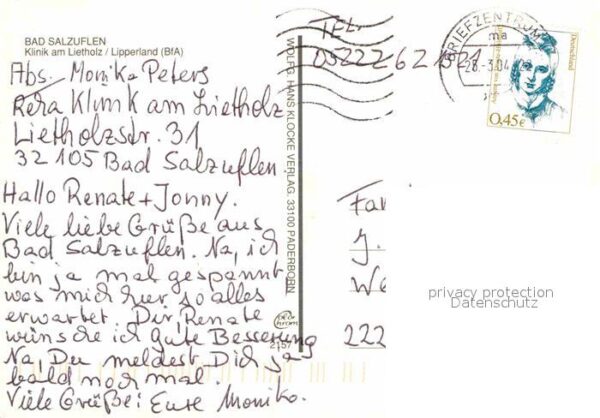 BAD SALZUFLEN
Klinik am Lietholz / Lipperland (BfA)
Abs. Monika Peters
Reha Klinik am Lietholz
Lietholzstr. 31
32105 Bad Salzuflen
Hallo Renate + Jonny.
Viele liebe Grüße aus
Bad Salzuflen. Na, ich
bin ja mal gespannt
was mich hier so alles
erwartet. Dir Renate
wünsche ich gute Besserung
Na, Du meldest Dich ja
bald noch mal.
Viele Grüße: Eure Monika.
WOLFG. HANS KLOCKE VERLAG, 33100 PADERBORN
2157
TEL.
BRIEFZENTRUM
ma
28.-3.04
Deutschland
0,45€
Fam
J.
We
222
privacy protection
Datenschutz